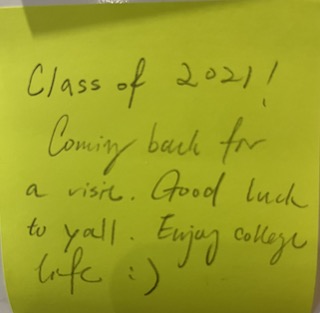 Class of 2021!
Coming back for
a visit. Good luck
to yall. Enjoy college
life :)